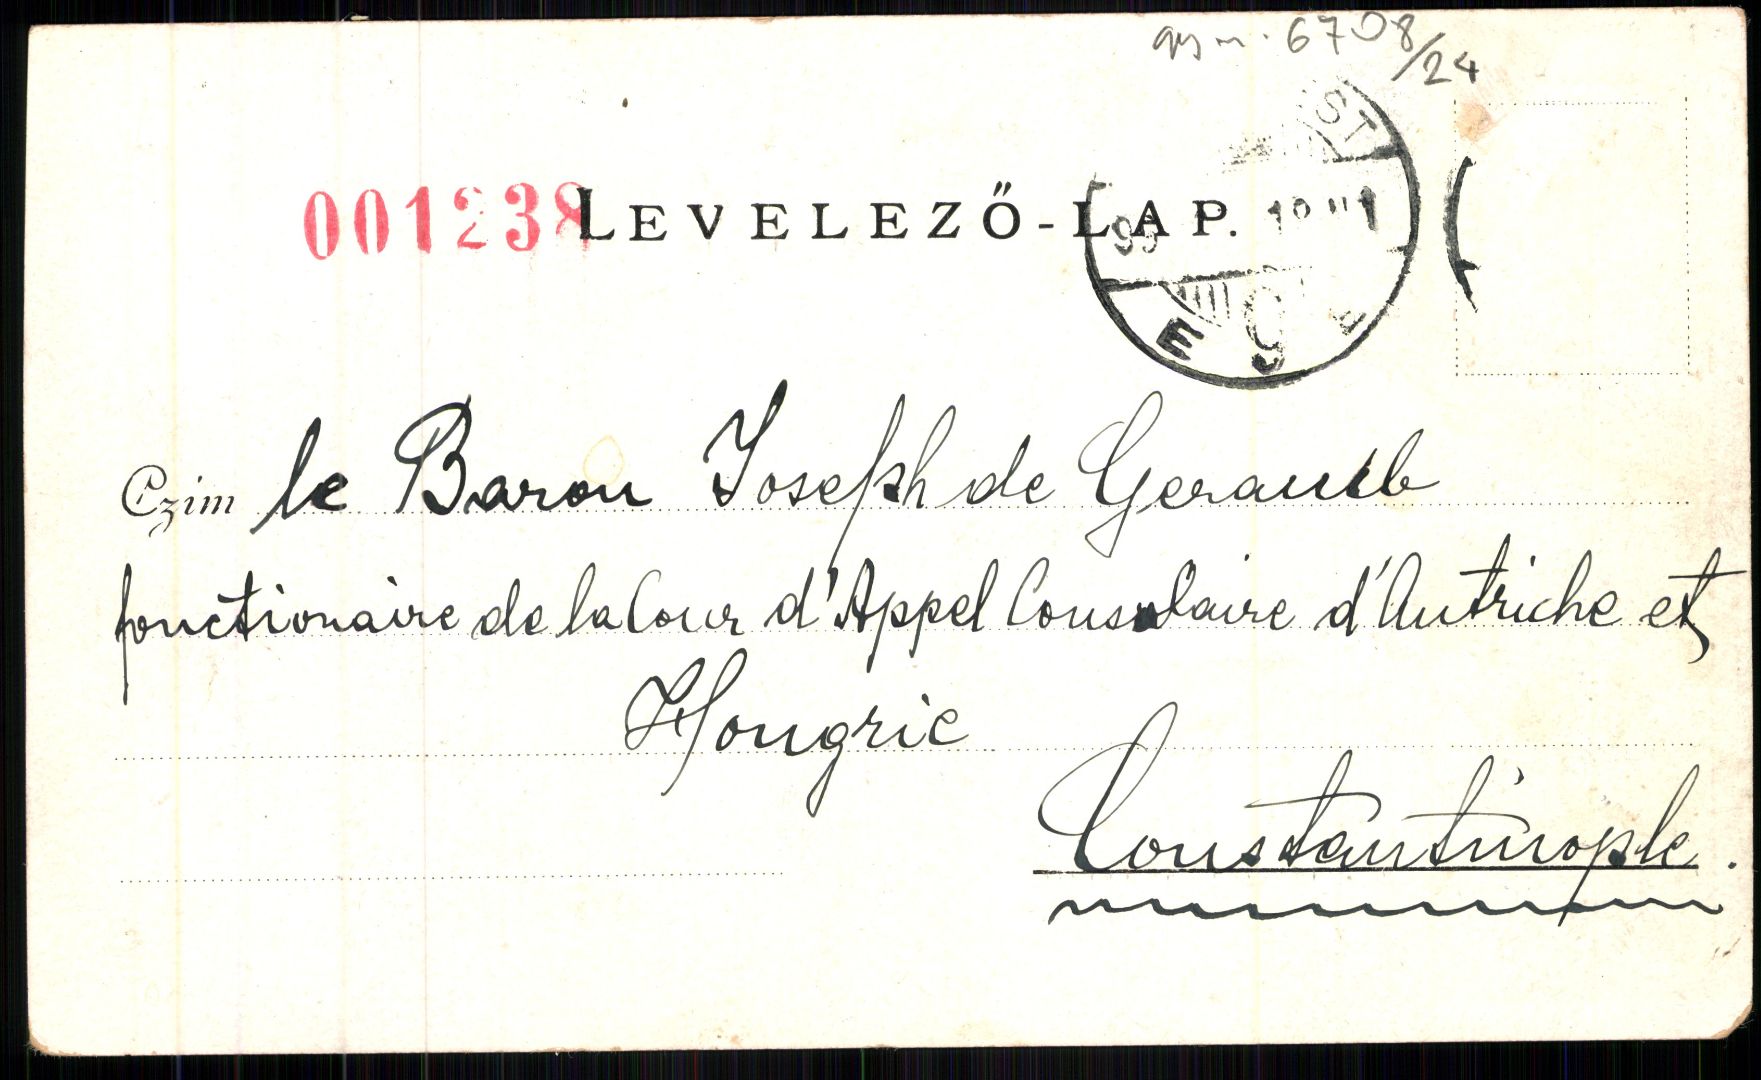 gy n. 6708/24
001238 LEVELEZŐ-LAP.
ST
99
E
9
Czim le Baron Joseph de Geramb
fonctionaire de la Cour d'Appel Consulaire d'Autriche et
Hongrie
Constantinople.